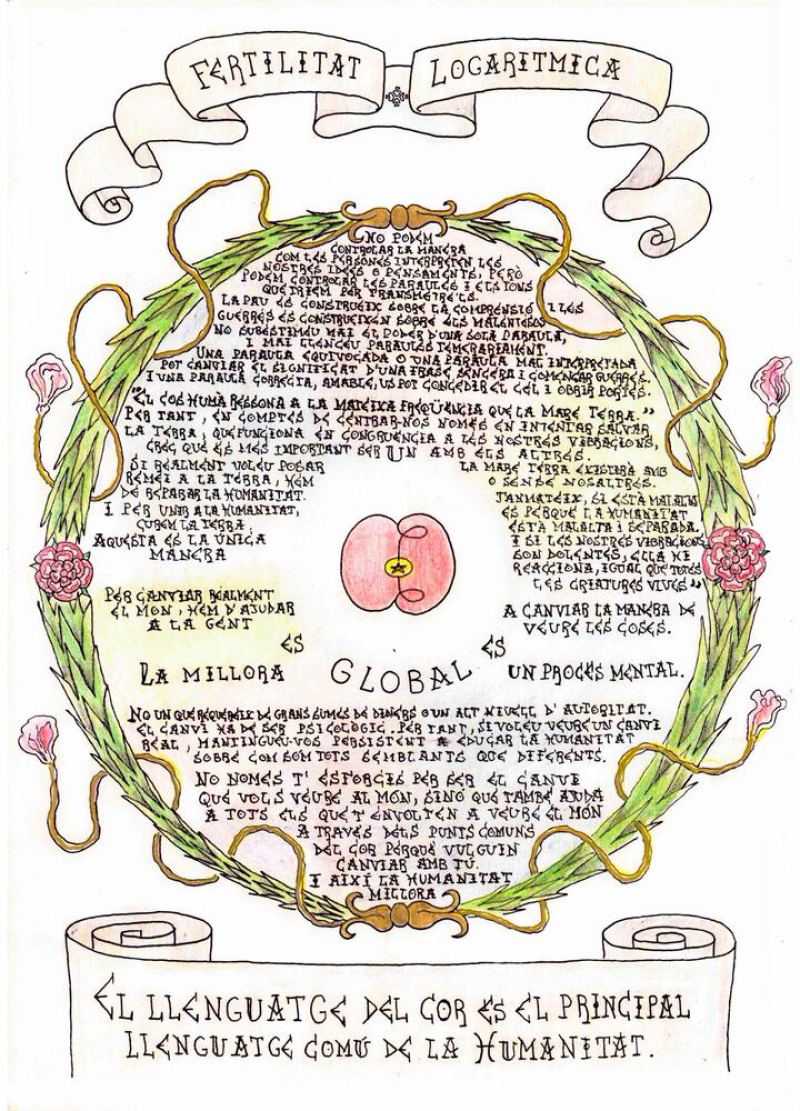 FERTILITAT LOGARITMICA
NO PODEM
CONTROLAR LA MANERA
COM LES PERSONES INTERPRETEN LES
NOSTRES IDEES O PENSAMENTS, PERÒ
PODEM CONTROLAR LES PARAULES I ELS IONS
QUE TRIEM PER TRANSMETRE'LS.
LA PAU ES CONSTRUEIX SOBRE LA COMPRENSIÓ I LES
GUERRES ES CONSTRUEIXEN SOBRE ELS MALENTESOS
NO SUBESTIMEU MAI EL PODER D'UNA SOLA PARAULA,
I MAI LLENCEU PARAULES TEMERARIAMENT.
UNA PARAULA EQUIVOCADA O UNA PARAULA MAL INTERPRETADA
POT CANVIAR EL SIGNIFICAT D'UNA FRASE SENCERA I COMENÇAR GUERRES.
I UNA PARAULA CORRECTA, AMABLE, US POT CONCEDIR EL CEL I OBRIR PORTES.
"EL COS HUMÀ RESSONA A LA MATEIXA FREQÜENCIA QUE LA MARE TERRA."
PER TANT, EN COMPTES DE CENTRAR-NOS NOMES EN INTENTAR SALVAR
LA TERRA, QUE FUNCIONA EN CONGRUENCIA A LES NOSTRES VIBRACIONS,
CREC QUE ES MES IMPORTANT SER UN AMB ELS ALTRES.
SI REALMENT VOLEU POSAR
REMEI A LA TERRA, HEM
DE REPARAR LA HUMANITAT.
I PER UNIR A LA HUMANITAT,
CUREM LA TERRA.
AQUESTA ES LA UNICA
MANERA
LA MARE TERRA EXISTIRÀ AMB
O SENSE NOSALTRES.
TANMATEIX, SI ESTÀ MALALTA
ES PERQUE LA HUMANITAT
ESTÀ MALALTA I SEPARADA.
I SI LES NOSTRES VIBRACIONS
SON DOLENTES, ELLA HI
REACCIONA, IGUAL QUE TOTES
LES CRIATURES VIVES"
PER CANVIAR REALMENT
EL MON, HEM D'AJUDAR
A LA GENT
A CANVIAR LA MANERA DE
VEURE LES COSES.
ES ES
LA MILLORA GLOBAL UN PROCES MENTAL.
NO UN QUE REQUEREIX DE GRANS SUMES DE DINERS O UN ALT NIVELL D'AUTORITAT.
EL CANVI HA DE SER PSICOLOGIC. PER TANT, SI VOLEU VEURE UN CANVI
REAL, MANTINGUEU-VOS PERSISTENT A EDUCAR LA HUMANITAT
SOBRE COM SOM TOTS SEMBLANTS QUE DIFERENTS.
NO NOMES T'ESFORCIS PER SER EL CANVI
QUE VOLS VEURE AL MÓN, SINÓ QUE TAMBE AJUDA
A TOTS ELS QUE T'ENVOLTEN A VEURE EL MON
A TRAVES DELS PUNTS COMUNS
DEL COR PERQUE VULGUIN
CANVIAR AMB TU.
I AIXÍ LA HUMANITAT
MILLORA
EL LLENGUATGE DEL COR ES EL PRINCIPAL
LLENGUATGE COMÚ DE LA HUMANITAT.